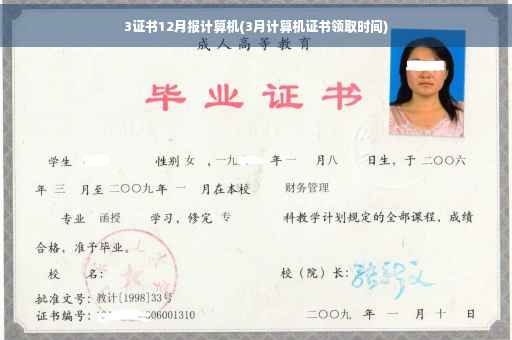 3证书12月报计算机(3月计算机证书领取时间)
成人高等教育
毕业证书
学生 性别 女 ，一九 年一 月八 日生，于二〇〇六
年 三 月至二〇〇九年 一 月在本校 财务管理
专业 函授 学习，修完 专 科教学计划规定的全部课程，成绩
合格，准予毕业。
校 名： 校（院）长：
批准文号：教计[1998]33号
证书编号： 06001310 二〇〇九 年 一 月 十 日